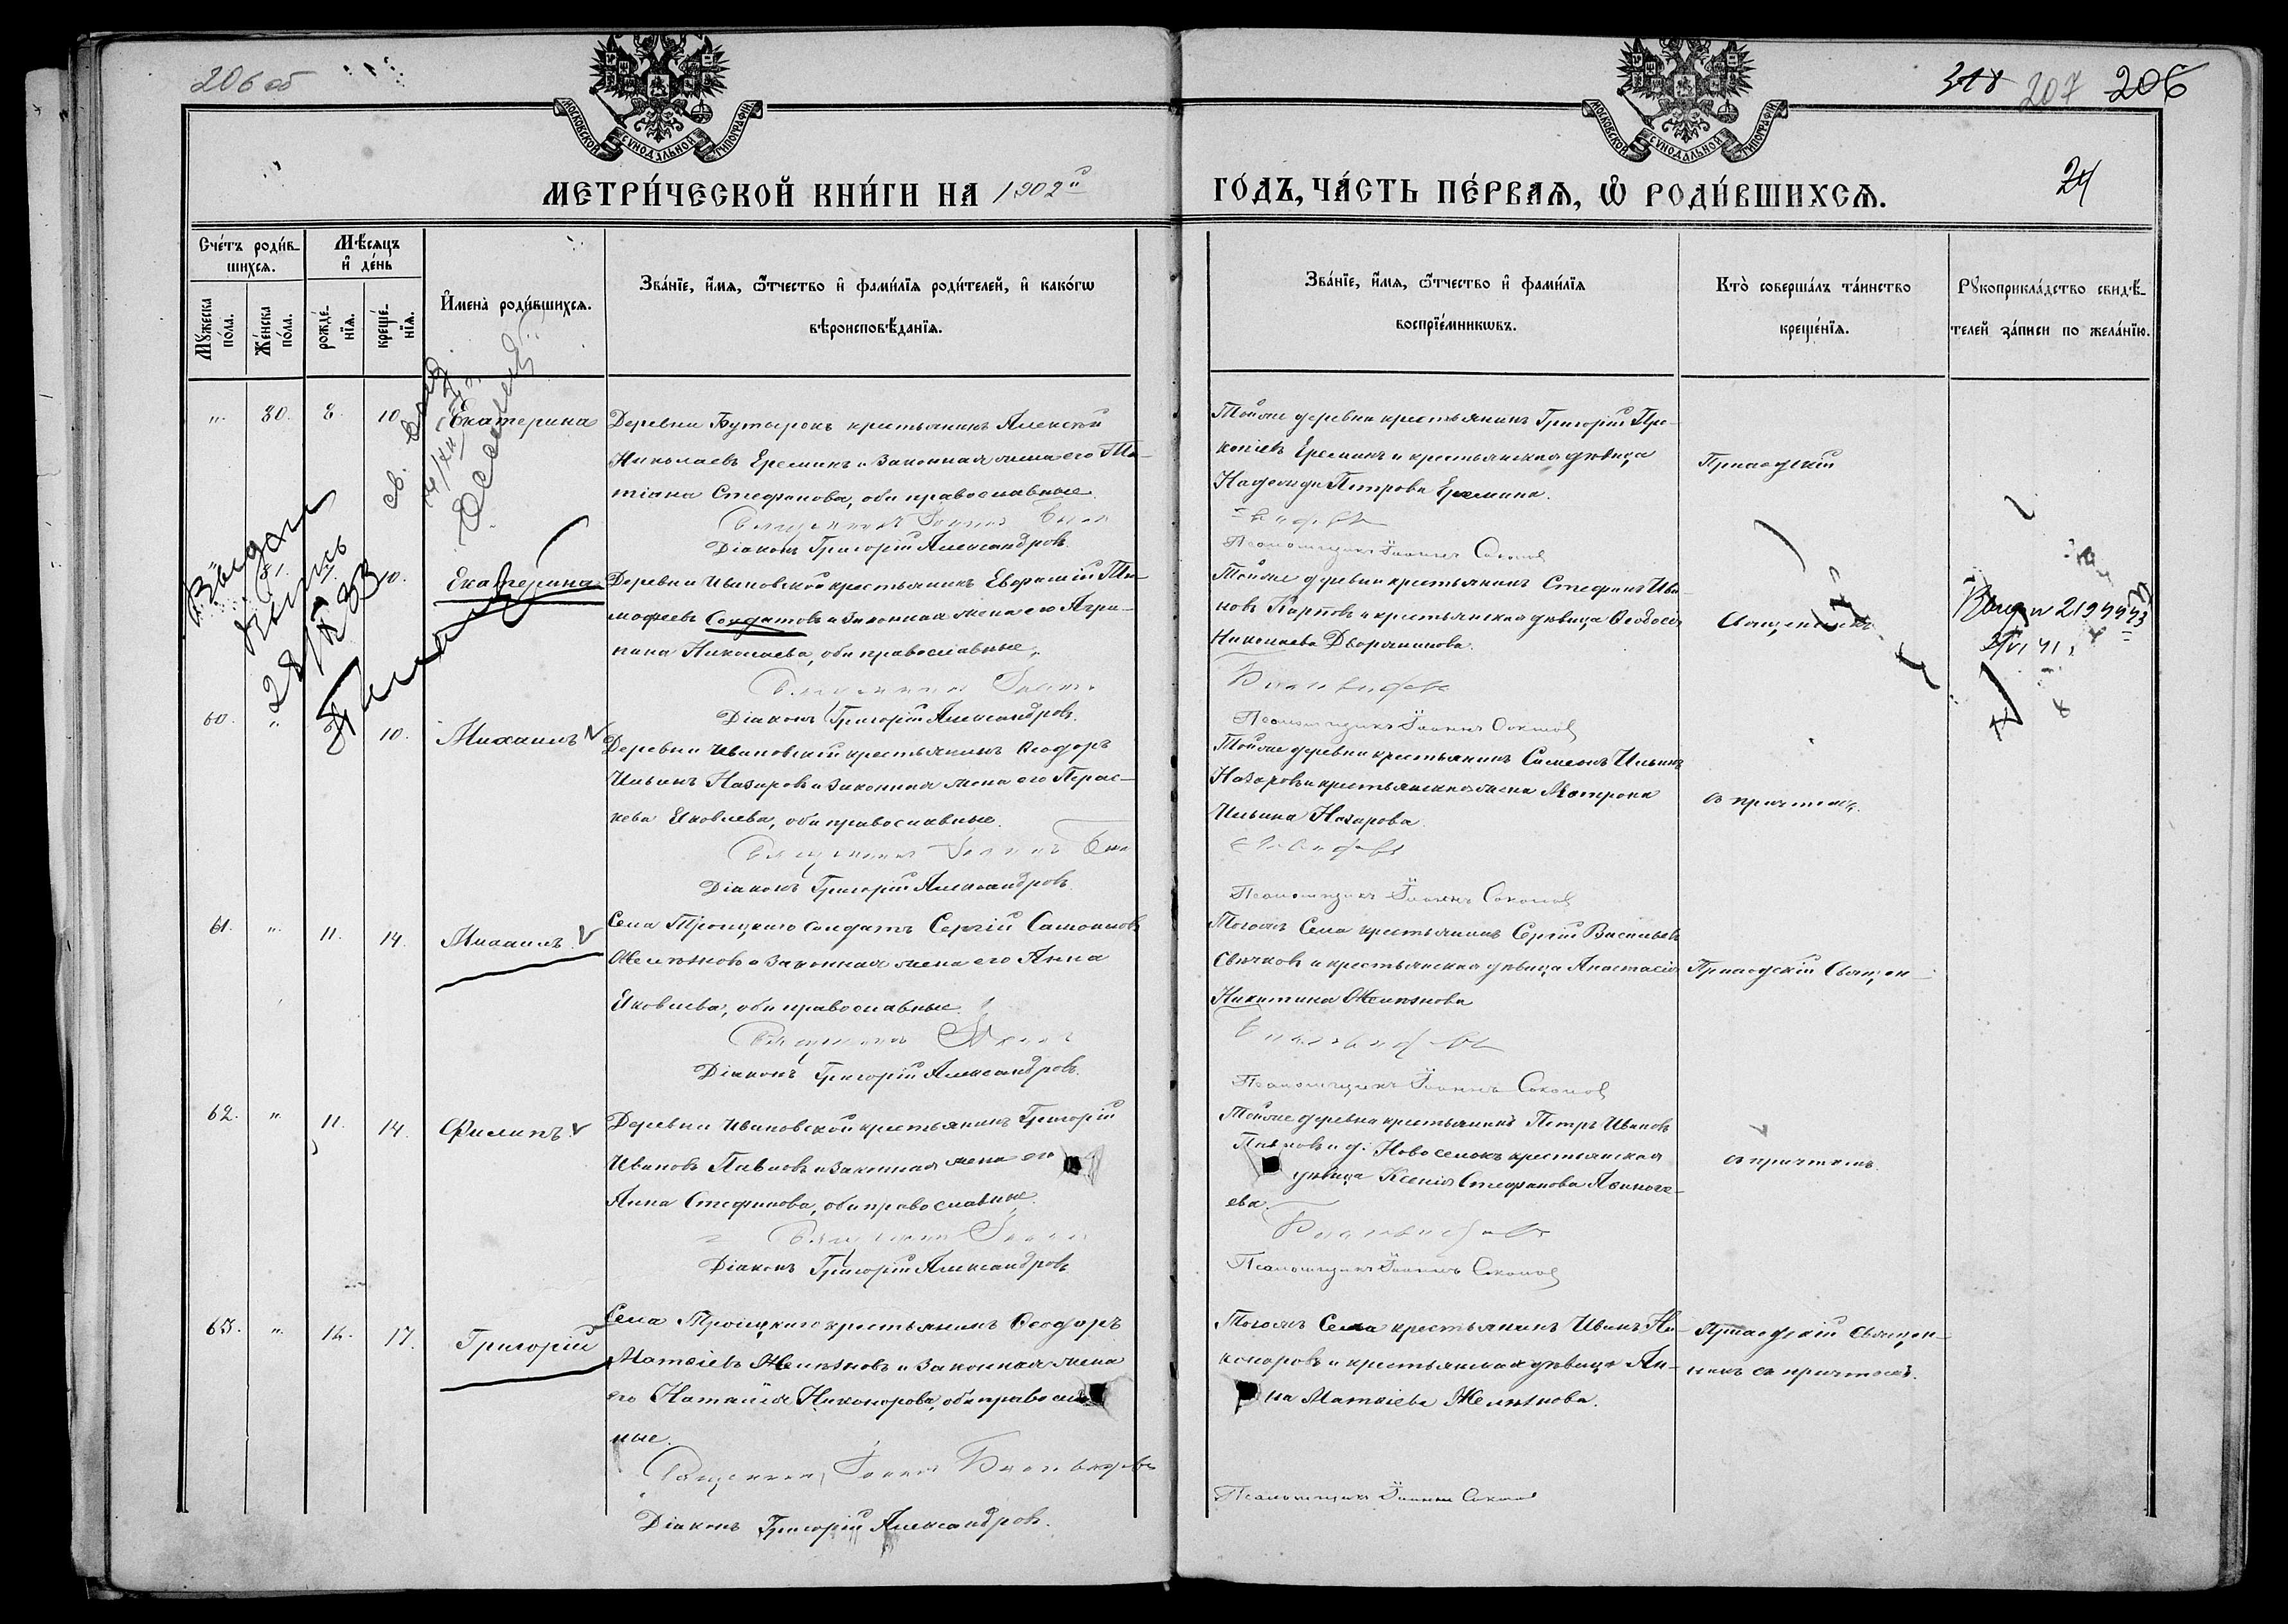 206 об
318 207 206
МОСКОВСКОЙ СѴНОДАЛЬНОЙ ТИПОГРАФІИ
МОСКОВСКОЙ СѴНОДАЛЬНОЙ ТИПОГРАФІИ
МЕТРИ́ЧЕСКОЙ КНИ́ГИ НА 1902й
ГО́ДЪ, ЧА́СТЬ ПЕ́РВАѦ, Ѡ҆ РОДИ́ВШИХСѦ.
24
Сче́тъ роди́в-
шихсѧ.
Мѣ́сѧцъ
и҆ де́нь
Мꙋ́жеска
по́ла.
Же́нска
по́ла.
рожде́-
нїѧ.
креще́-
нїѧ.
И҆мена̀ роди́вшихсѧ.
Зва́нїе, и҆́мѧ, ѻ҆́тчество и҆ фами́лїѧ роди́телей, и҆ како́гѡ
вѣроисповѣ́данїѧ.
Зва́нїе, и҆́мѧ, ѻ҆́тчество и҆ фами́лїѧ
воспрїе́мникѡвъ.
Кто̀ соверша́лъ та́инство
креще́нїѧ.
Рꙋкоприкла́дство свидѣ́-
телей за́писи по жела́нїю.
" 30. 8. 10. Екатерина
Деревни Бутырокъ крестьянинъ Алексѣй
Николаевъ Ереминъ и законная жена его Та-
тіана Стефанова, оба православные.
Діаконъ Григорій Александровъ.
Тойже деревни крестьянинъ Григорій Про-
копіевъ Ереминъ и крестьянская дѣвица
Надежда Петрова Еремина.
Псаломщикъ Іоаннъ Соколов
Приходскій
Выдан
28/X 33
10. Екатерина
Деревни Ивановской крестьянинъ Евфимій Ти-
мофеевъ Солдатовъ и законная жена его Агри-
пина Николаева, оба православные.
Священникъ Іоаннъ
Діаконъ Григорій Александровъ.
Тойже деревни крестьянинъ Стефанъ Ива-
новъ Карповъ и крестьянская дѣвица Ѳеодосія
Николаева Дворянинова.
Псаломщикъ Іоаннъ Соколов
Священникъ
60. " 10. Михаилъ
Деревни Ивановской крестьянинъ Ѳеодоръ
Ильинъ Назаровъ и законная жена его Парас-
кева Яковлева, оба православные.
Священникъ Іоаннъ
Діаконъ Григорій Александровъ.
Тойже деревни крестьянинъ Симеонъ Ильинъ
Назаровъ и крестьянская жена Матрона
Ильина Назарова.
Псаломщикъ Іоаннъ Соколов
съ причтомъ.
61. " 11. 14. Михаилъ
Села Троицкаго солдатъ Сергій Самоиловъ
Желѣзновъ и законная жена его Анна
Яковлева, оба православные.
Діаконъ Григорій Александровъ.
Тогожъ Села крестьянинъ Сергій Васильевъ
Свѣчковъ и крестьянская дѣвица Анастасія
Никитина Желѣзнова
Псаломщикъ Іоаннъ Соколов
Приходскій Священ-
62. " 11. 14. Филипъ
Деревни Ивановской крестьянинъ Григорій
Ивановъ Павловъ и законная жена его
Анна Стефанова, оба православные.
Діаконъ Григорій Александровъ
Тойже деревни крестьянинъ Петръ Ивановъ
Павловъ и д. Новоселокъ крестьянская
дѣвица Ксенія Стефанова
ева.
Псаломщикъ Іоаннъ Соколов
съ причтомъ.
63. " 12. 17. Григорій
Села Троицкаго крестьянинъ Ѳеодоръ
Матвіевъ Желѣзновъ и законная жена
его Наталія Никонорова, оба православ-
ные.
Священникъ Іоаннъ
Діаконъ Григорій Александровъ.
Тогожъ Села крестьянинъ Иванъ Ни-
коноровъ и крестьянская дѣвица Ан-
на Матвіева Желѣзнова.
Псаломщикъ Іоаннъ Соколов
Приходскій Священ-
никъ съ причтомъ.